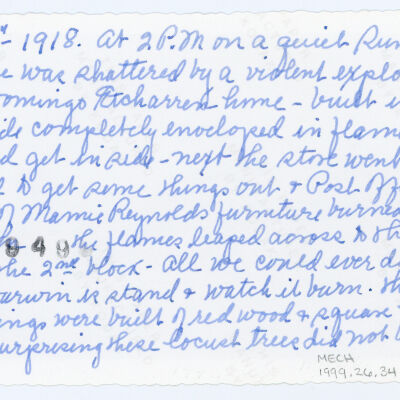 st- 1918. At 2 P.M on a quiet Sun
e was shattered by a violent explo
omingo Etcharren home - built i
ide completely enveloped in flame
d get inside - next the store went
2 to get some things out + Post Off
of Mamie Reynolds furniture burned
940 the flames leaped across to th
the 2nd block - All we could ever d
arwin is stand & watch it burn. Th
ings were built of redwood & square
urprising these locust trees did not b
MECH
1999.26.34